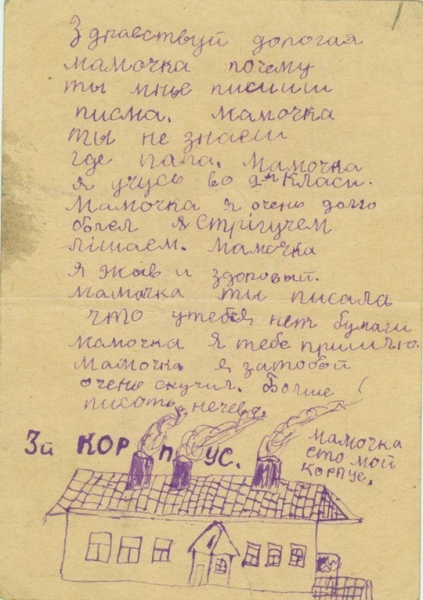 Здравствуй дорогая
мамочка почему
ты мнье писиши
писма. мамочка
ты не знаеш
где папа. мамочка
я учусь во 2м класи.
мамочка я очень долго
болел я стрігучем
лішаем. мамочка
я жыв и здоровый.
мамочка ты писала
что у тебя нет бумаги
мамочка я тебе пришлю.
мамочка я затобой
очень скучил. Больше
писать нечева.
3й КОРПУС.
мамочка
єто мой
корпус.